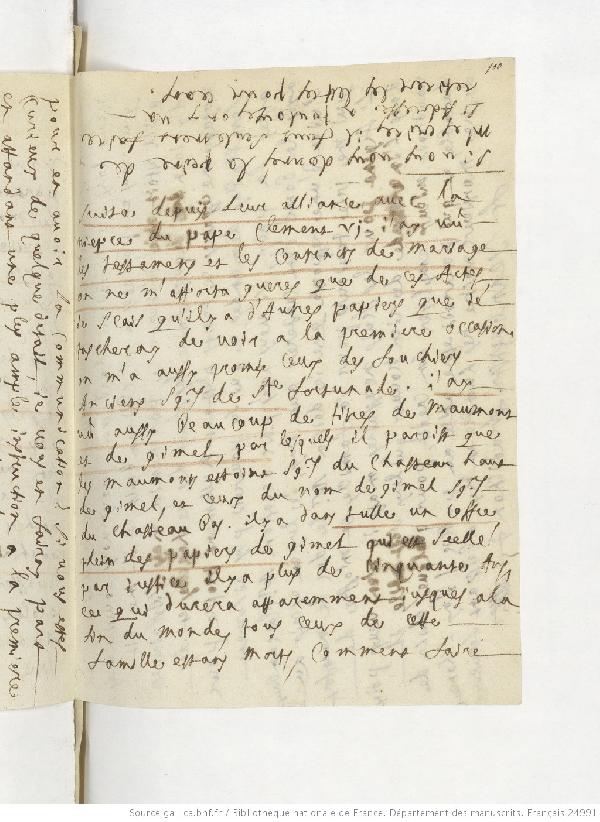 suite depuis Leur alliance avec La
niepce du pape Clement Vj. i'ay vû
les testamens et les Contracts de mariage
on ne m'apporta gueres que de ces Actes,
ie scais qu'il y a d'Autres papiers que ie
tascheray de voir a la premiere occasion.
on m'a aussy promis ceux des Souchiers
Anciens Sgrs de Ste fortunade. i'ay
vû aussy Beaucoup de titres de Maumont
et de gimel, par lesquels il paroist que
les maumons estoient Sgrs du Chasteau haut
de gimel, et ceux du nom de gimel Sgrs
du chasteau Bas. il y a dans tulle un coffre
plein des papiers de gimel qui est scellé
par iustice il y a plus de Cinquante Ans,
ce qui durera apparemment iusques a la
fin du monde, tous ceux de cette
famille estans morts, Comment faire
pour en avoir la communication? si vous estes
Curieux de quelque detail, ie vous en fairay part
en attendant une plus ample instruction a la premiere
Source gallica.bnf.fr / Bibliothèque nationale de France. Département des manuscrits. Français 24991